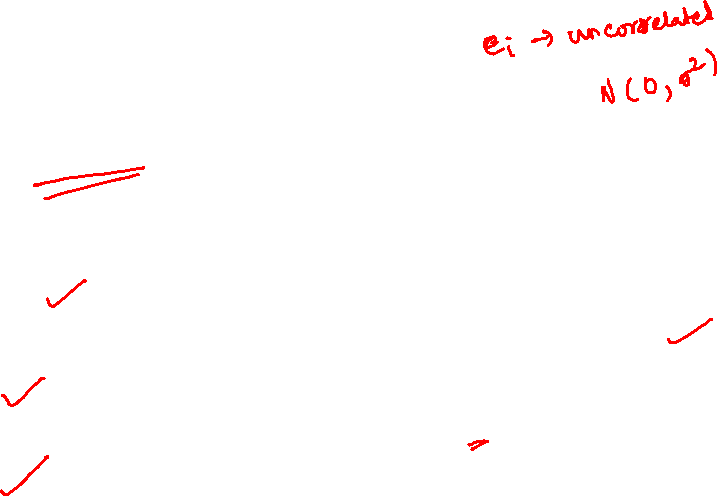 ei → uncorrelated
N(0, σ²)